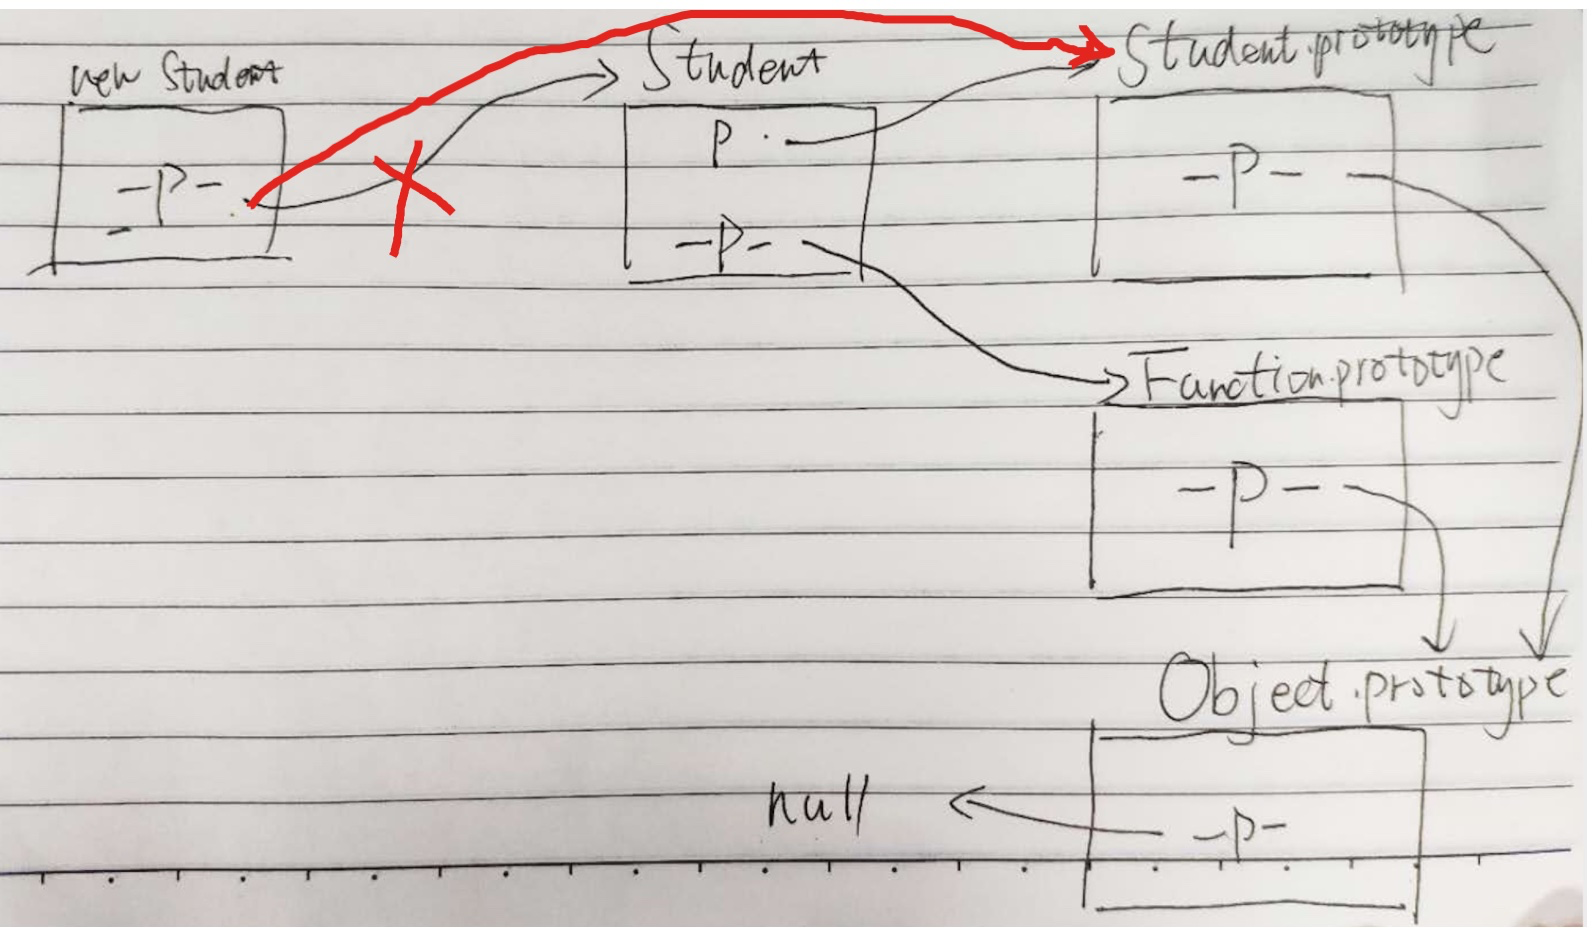 new Student
Student
Student.prototype
-P-
P
-P-
-P-
Function.prototype
-P-
Object.prototype
null
-P-